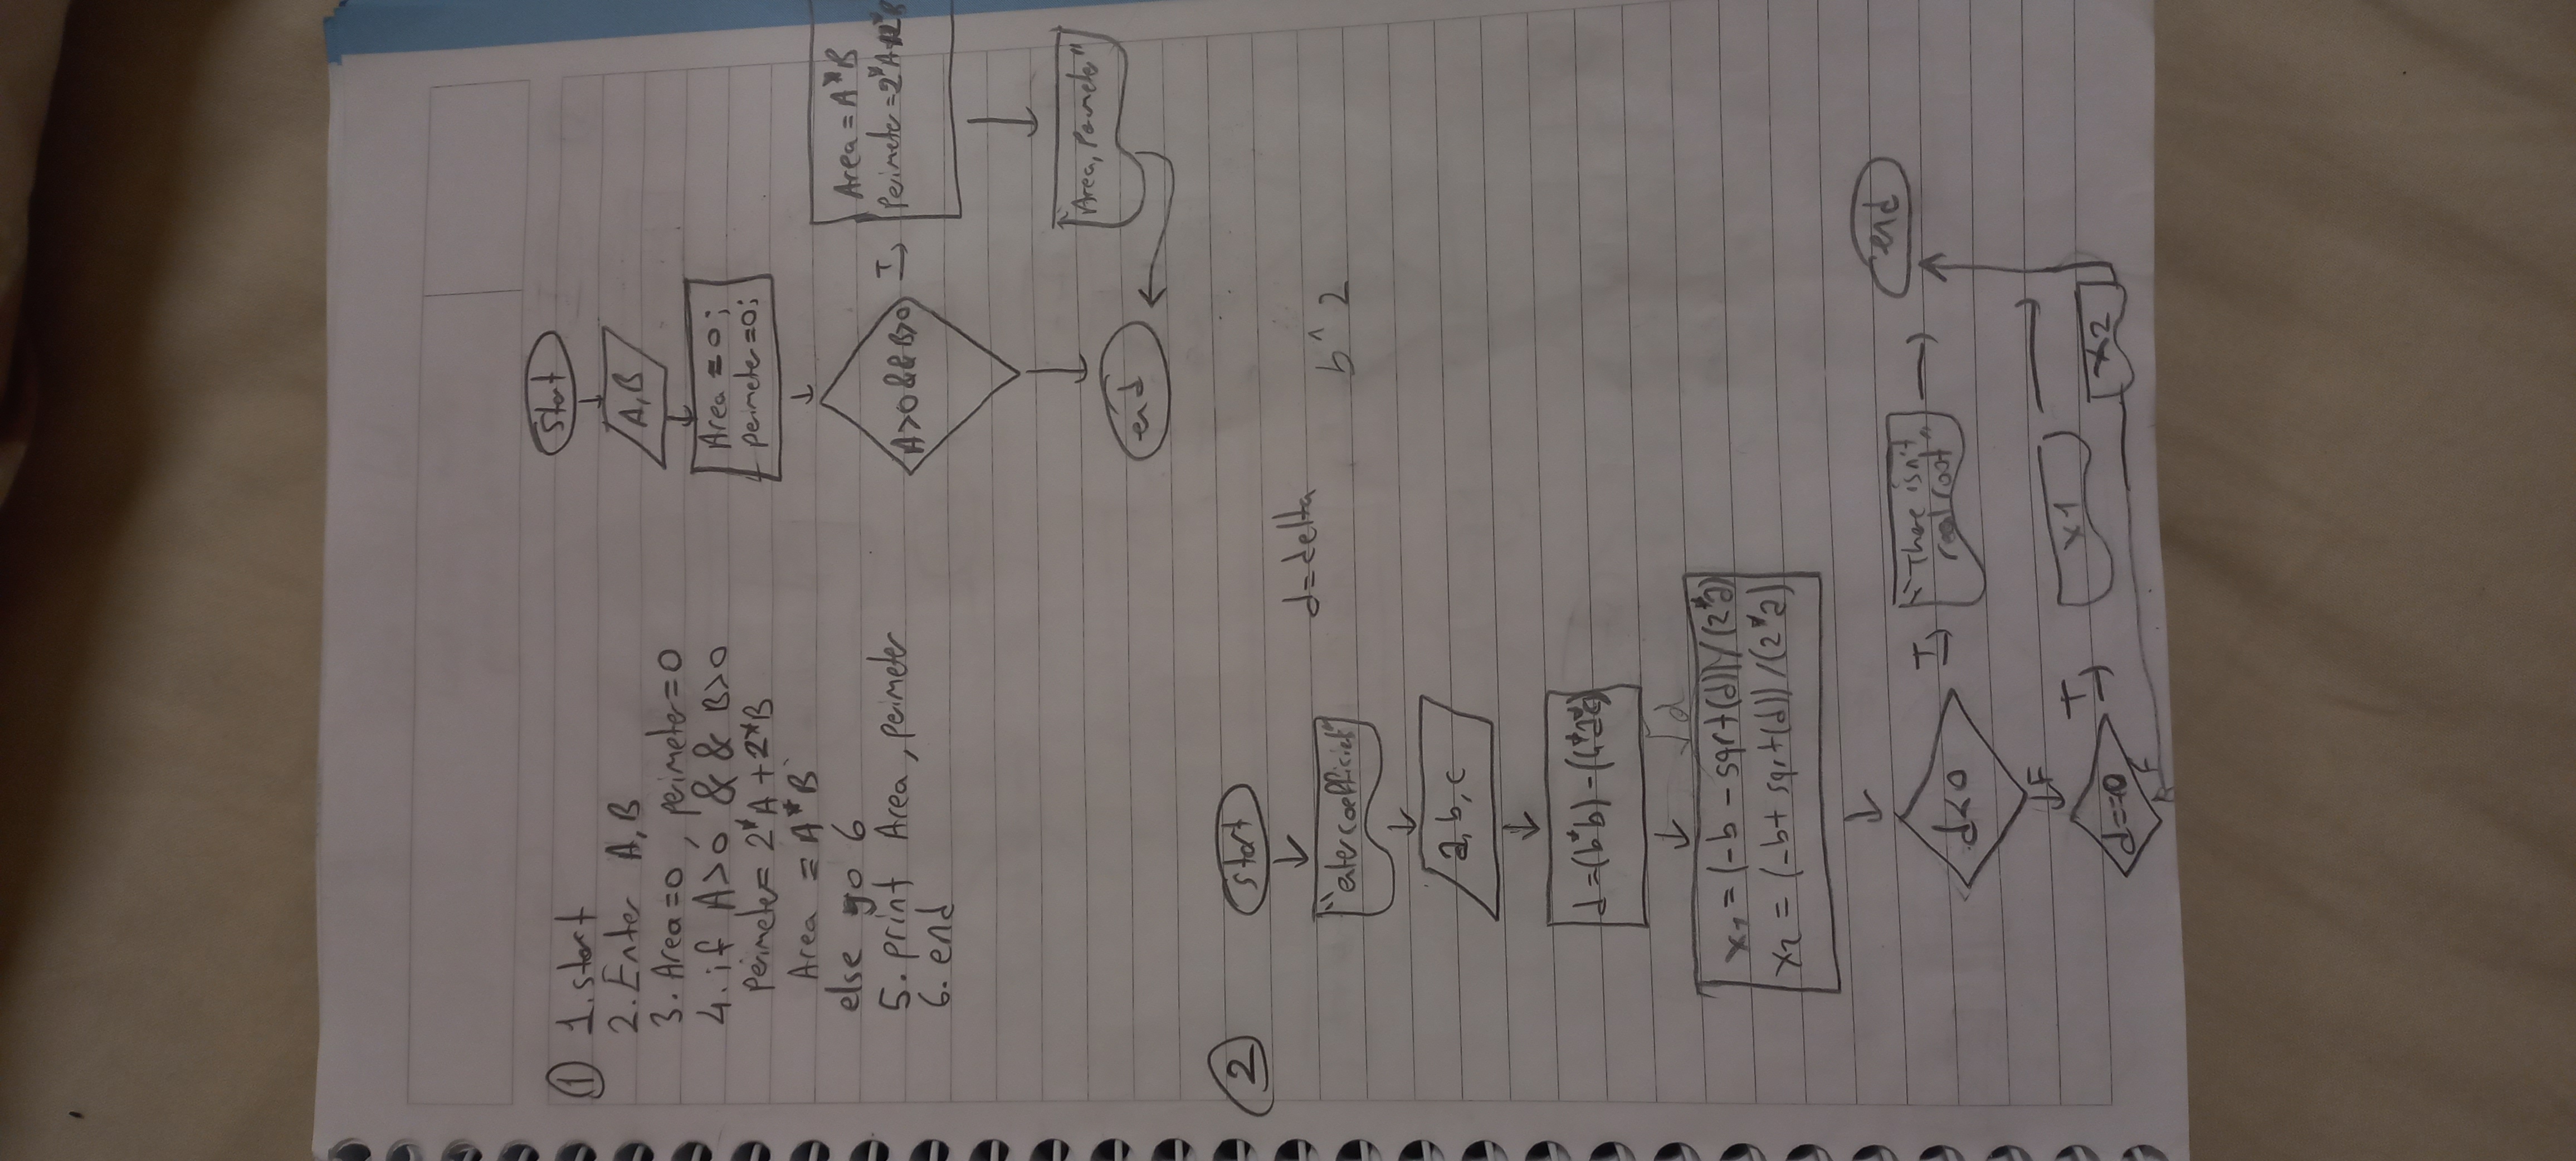 ① 1. start
2. Enter A, B
3. Area=0, perimeter=0
4. if A>0 && B>0
perimeter= 2*A+2*B
Area = A*B
else go 6
5. print Area, perimeter
6. end
start
A, B
Area = 0;
perimeter=0;
A>0 && B>0
T
Area = A*B
Perimeter =2*A+2*B
"Area, Perimeter"
end
②
start
d=delta
b^2
"enter coefficient"
a, b, c
d =(b*b) - (4*a*c)
√d
x1 = (-b - sqrt(d)) / (2*a)
x2 = (-b+ sqrt(d)) / (2*a)
d<0
T
"There isn't
real root"
end
F
d==0
T
x1
x2
F